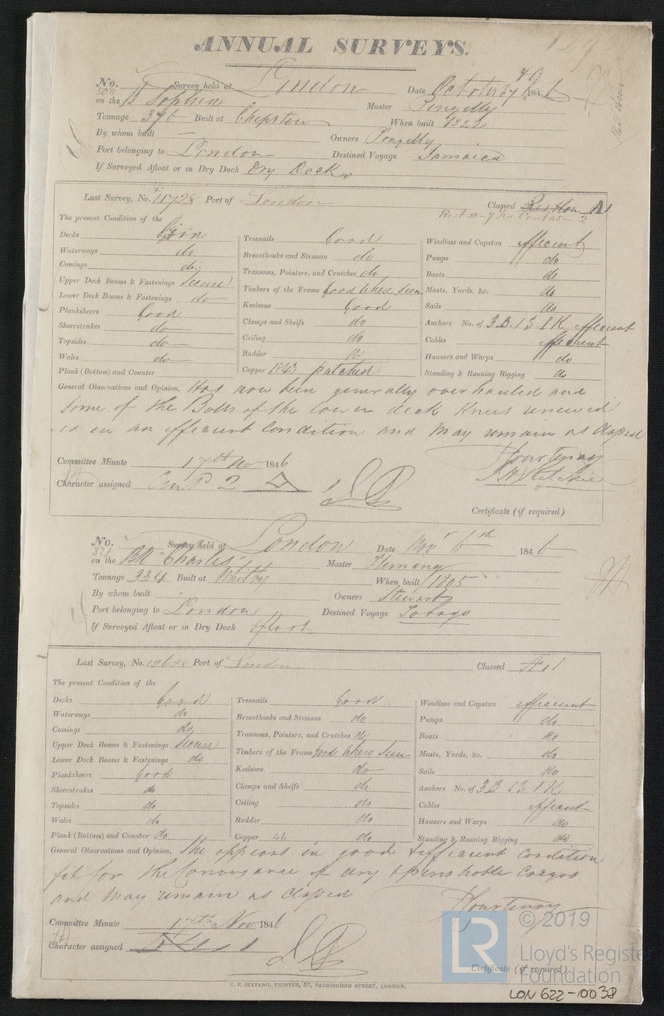 ANNUAL SURVEYS.
No. Survey held at London Date October 1846
on the Sophia Master Pengelly
Tonnage 346 Built at Chepstow When built 1822
By whom built Owners Pengelly
Port belonging to London Destined Voyage Jamaica
If Surveyed Afloat or in Dry Dock Dry Dock
Last Survey, No. 11728 Port of London Classed
The present Condition of the
Decks Treenails Good Windlass and Capstan efficient
Waterways do Breasthooks and Stemson do Pumps do
Comings do Transoms, Pointers, and Crutches do Boats do
Upper Deck Beams & Fastenings Secure Timbers of the Frame good where seen Masts, Yards, &c. do
Lower Deck Beams & Fastenings do Keelsons Good Sails do
Plansheers Good Clamps and Shelfs do Anchors No. of 3 B. 1 S. 1 K. efficient
Sheerstrakes do Ceiling do Cables efficient
Topsides do Rudder do Hawsers and Warps do
Wales do Copper 1843 patched Standing & Running Rigging do
Plank (Bottom) and Counter
General Observations and Opinion, Has now been generally overhauled and
some of the Bolts of the lower deck Knees renewed
is in an efficient Condition and may remain as Classed
Courtenay
Committee Minute 17th Nov 1846
Character assigned
Certificate (if required)
No. 321 Survey held at London Date Nov 6th 1846
on the BK "Charles" Master Fleming
Tonnage 334 Built at Whitby When built
By whom built Owners Stewart
Port belonging to London Destined Voyage Tobago
If Surveyed Afloat or in Dry Dock Afloat
Last Survey, No. Port of London Classed
The present Condition of the
Decks Good Treenails Good Windlass and Capstan efficient
Waterways do Breasthooks and Stemson do Pumps do
Comings do Transoms, Pointers, and Crutches do Boats do
Upper Deck Beams & Fastenings Secure Timbers of the Frame good where seen Masts, Yards, &c. do
Lower Deck Beams & Fastenings do Keelsons do Sails do
Plansheers Good Clamps and Shelfs do Anchors No. of 3 B 1 S. 1 K.
Sheerstrakes do Ceiling do Cables efficient
Topsides do Rudder do Hawsers and Warps do
Wales do Copper do Standing & Running Rigging do
Plank (Bottom) and Counter do
General Observations and Opinion, She appears in good & efficient Condition
fit for the Conveyance of dry & perishable Cargos
and may remain as Classed
Courtenay
Committee Minute Nov 1846
Character assigned
Certificate (if required)
C. F. SEYFANG, PRINTER, 57, FARRINGDON STREET, LONDON.
LR © 2019
Lloyd's Register
Foundation
LON 622-0038